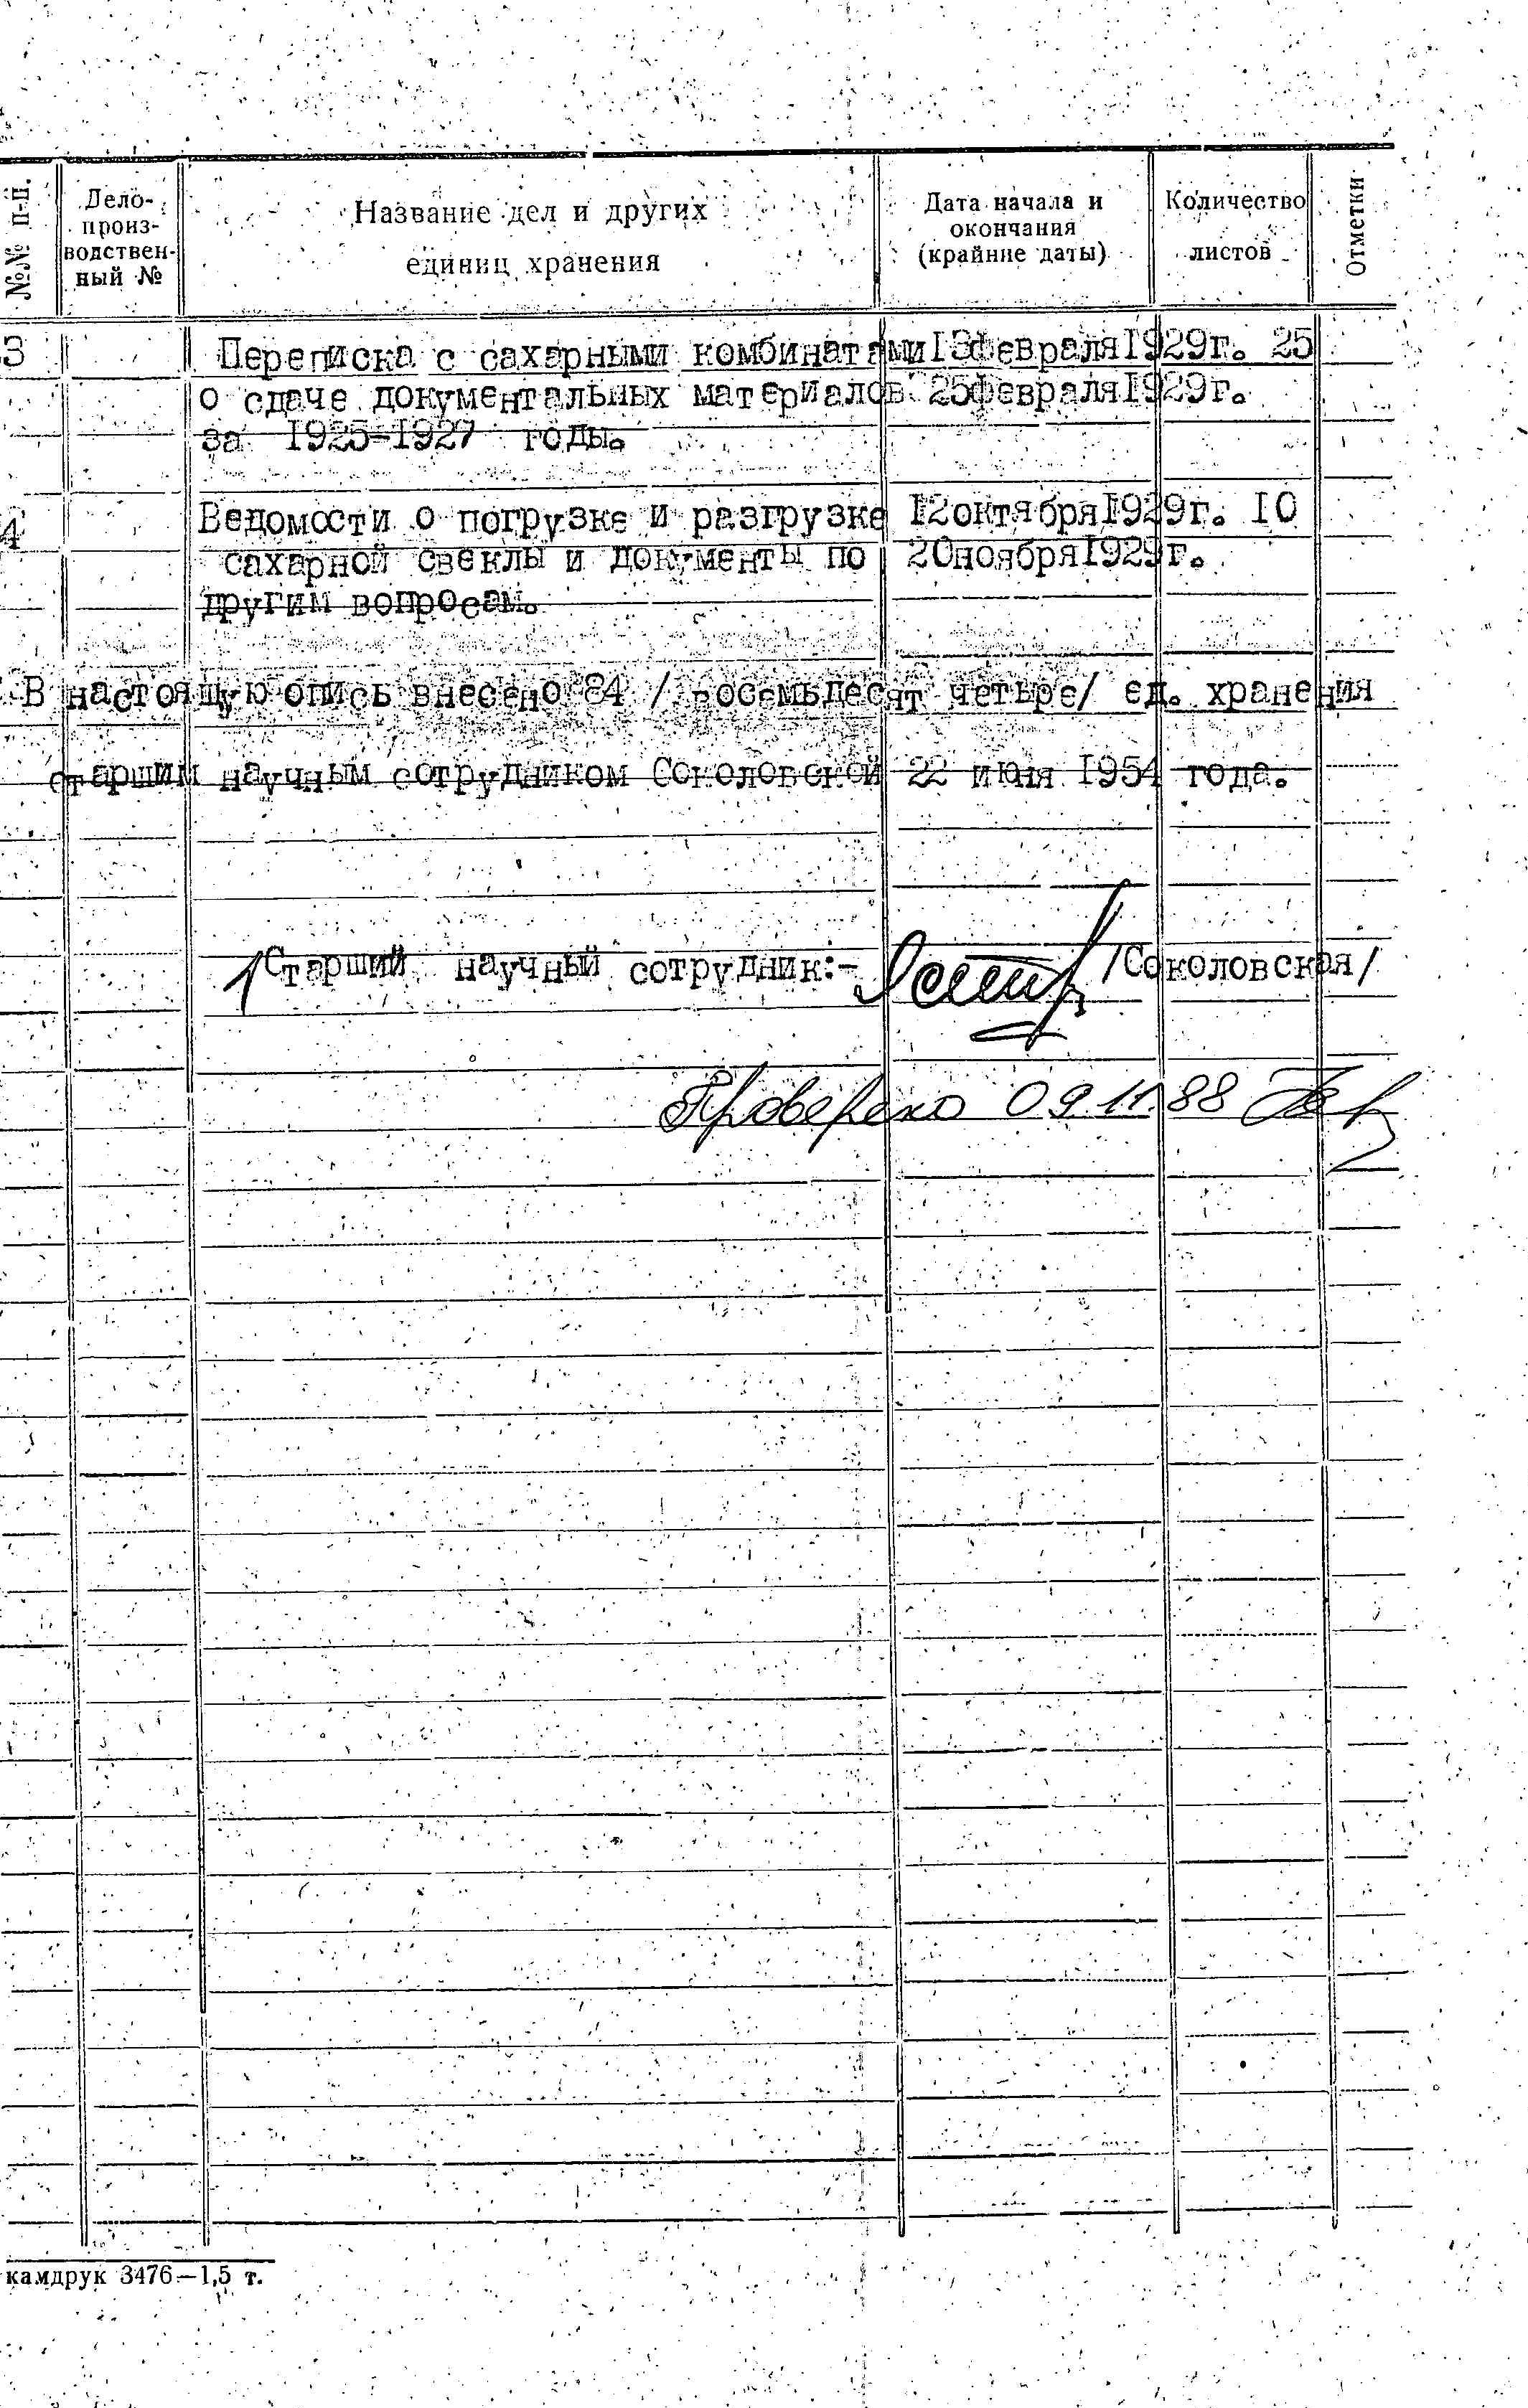 №№ п-п.
Дело-
произ-
водствен-
ный №
Название дел и других
единиц хранения
Дата начала и
окончания
(крайние даты)
Количество
листов
Отметки
3 Переписка с сахарными комбинатами февраля 1929г. 25
о сдаче документальных материалов 25 февраля 1929г.
за 1925-1927 годы.
4 Ведомости о погрузке и разгрузке 12 октября 1929г. 10
сахарной свеклы и документы по 20 ноября 1929г.
другим вопросам.
В настоящую опись внесено 84 / восемьдесят четыре/ ед. хранения
старшим научным сотрудником Соколовской 22 июня 1954 года.
Старший научный сотрудник:- /Соколовская/
Проверено 09.11.88
камдрук 3476—1,5 т.